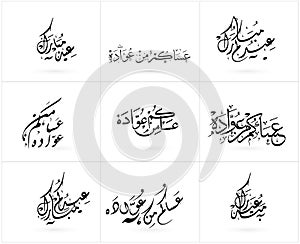 عيد مبارك
عساكم من عواده
عيدكم مبارك
عساكم من عواده
عساكم من عواده
عساكم من عواده
عيدكم مبارك
عساكم من عواده
عيد مبارك